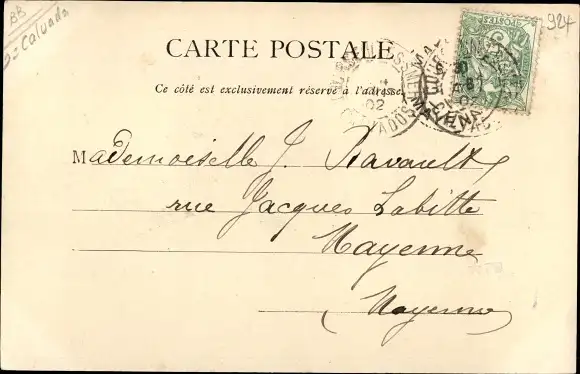 BB
D = Calvados
924
CARTE POSTALE
Ce côté est exclusivement réservé à l'adresse.
02
CALVADOS
MAYENNE
POSTES
Mademoiselle J. Ravault
rue Jacques Labitte
Mayenne
(Mayenne)